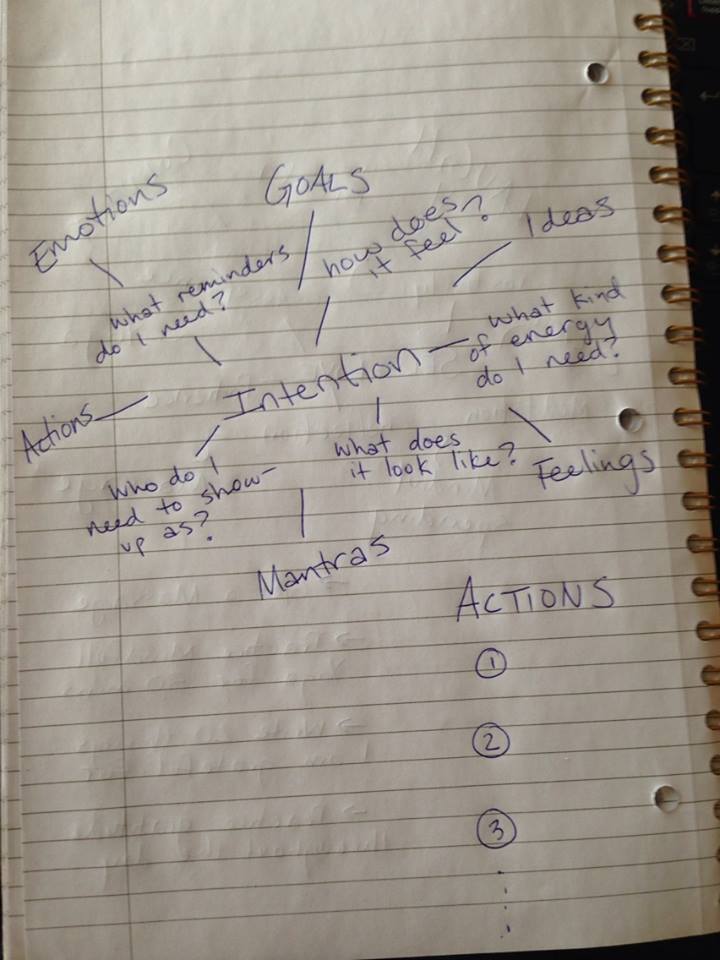 GOALS
Emotions
Ideas
how does
it feel?
what reminders
do I need?
what kind
of energy
do I need?
Intention
Actions
what does
it look like?
who do I
need to show-
up as?
Feelings
Mantras
ACTIONS
1
2
3